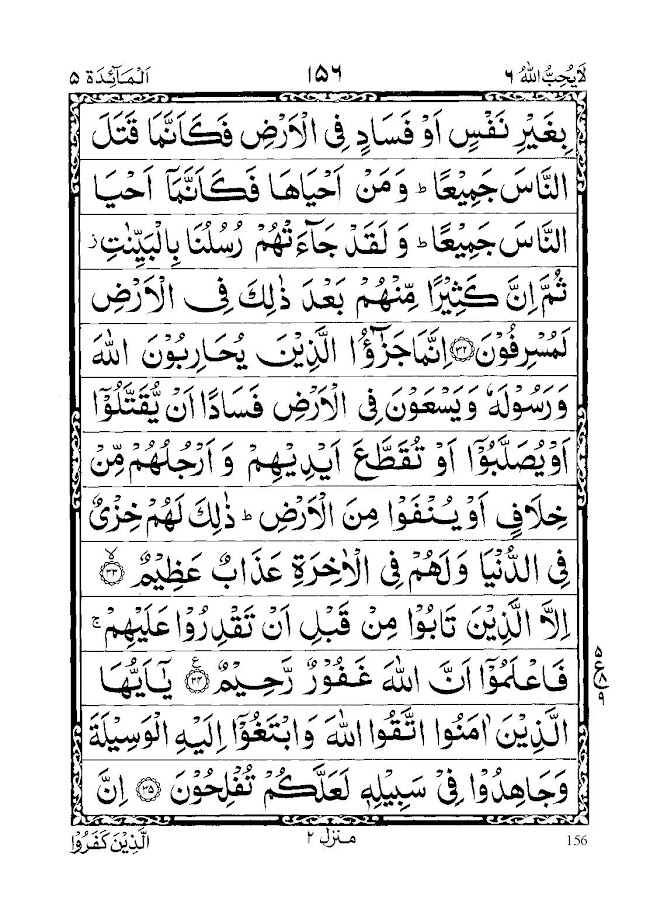 لَا يُحِبُّ اللهُ ٦ ١٥٦ اَلْمَآئِدَة ٥
بِغَيْرِ نَفْسٍ اَوْ فَسَادٍ فِی الْاَرْضِ فَكَاَنَّمَا قَتَلَ
النَّاسَ جَمِيْعًا ؕ وَ مَنْ اَحْيَاهَا فَكَاَنَّمَاۤ اَحْيَا
النَّاسَ جَمِيْعًا ؕ وَ لَقَدْ جَآءَتْهُمْ رُسُلُنَا بِالْبَيِّنٰتِ ز
ثُمَّ اِنَّ كَثِيْرًا مِّنْهُمْ بَعْدَ ذٰلِكَ فِی الْاَرْضِ
لَمُسْرِفُوْنَ ﴿۳۲﴾ اِنَّمَا جَزٰٓؤُا الَّذِيْنَ يُحَارِبُوْنَ اللهَ
وَ رَسُوْلَهٗ وَ يَسْعَوْنَ فِی الْاَرْضِ فَسَادًا اَنْ يُّقَتَّلُوْۤا
اَوْ يُصَلَّبُوْۤا اَوْ تُقَطَّعَ اَيْدِيْهِمْ وَ اَرْجُلُهُمْ مِّنْ
خِلَافٍ اَوْ يُنْفَوْا مِنَ الْاَرْضِ ؕ ذٰلِكَ لَهُمْ خِزْیٌ
فِی الدُّنْيَا وَ لَهُمْ فِی الْاٰخِرَةِ عَذَابٌ عَظِيْمٌ ﴿۳۳﴾ لا
اِلَّا الَّذِيْنَ تَابُوْا مِنْ قَبْلِ اَنْ تَقْدِرُوْا عَلَيْهِمْ ۚ
فَاعْلَمُوْۤا اَنَّ اللهَ غَفُوْرٌ رَّحِيْمٌ ﴿۳۴﴾ ع يٰۤاَيُّهَا
٥ ع ٨ ٩
الَّذِيْنَ اٰمَنُوا اتَّقُوا اللهَ وَ ابْتَغُوْۤا اِلَيْهِ الْوَسِيْلَةَ
وَ جَاهِدُوْا فِیْ سَبِيْلِهٖ لَعَلَّكُمْ تُفْلِحُوْنَ ﴿۳۵﴾ اِنَّ
156 مـنزل ٢ الَّذِيْنَ كَفَرُوْا